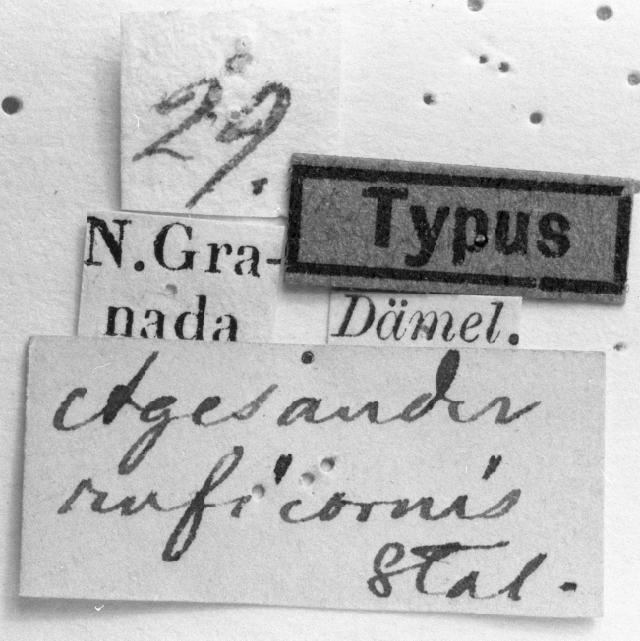 29.
Typus
N.Gra-
nada
Dämel.
Agesander
ruficornis
Stal.